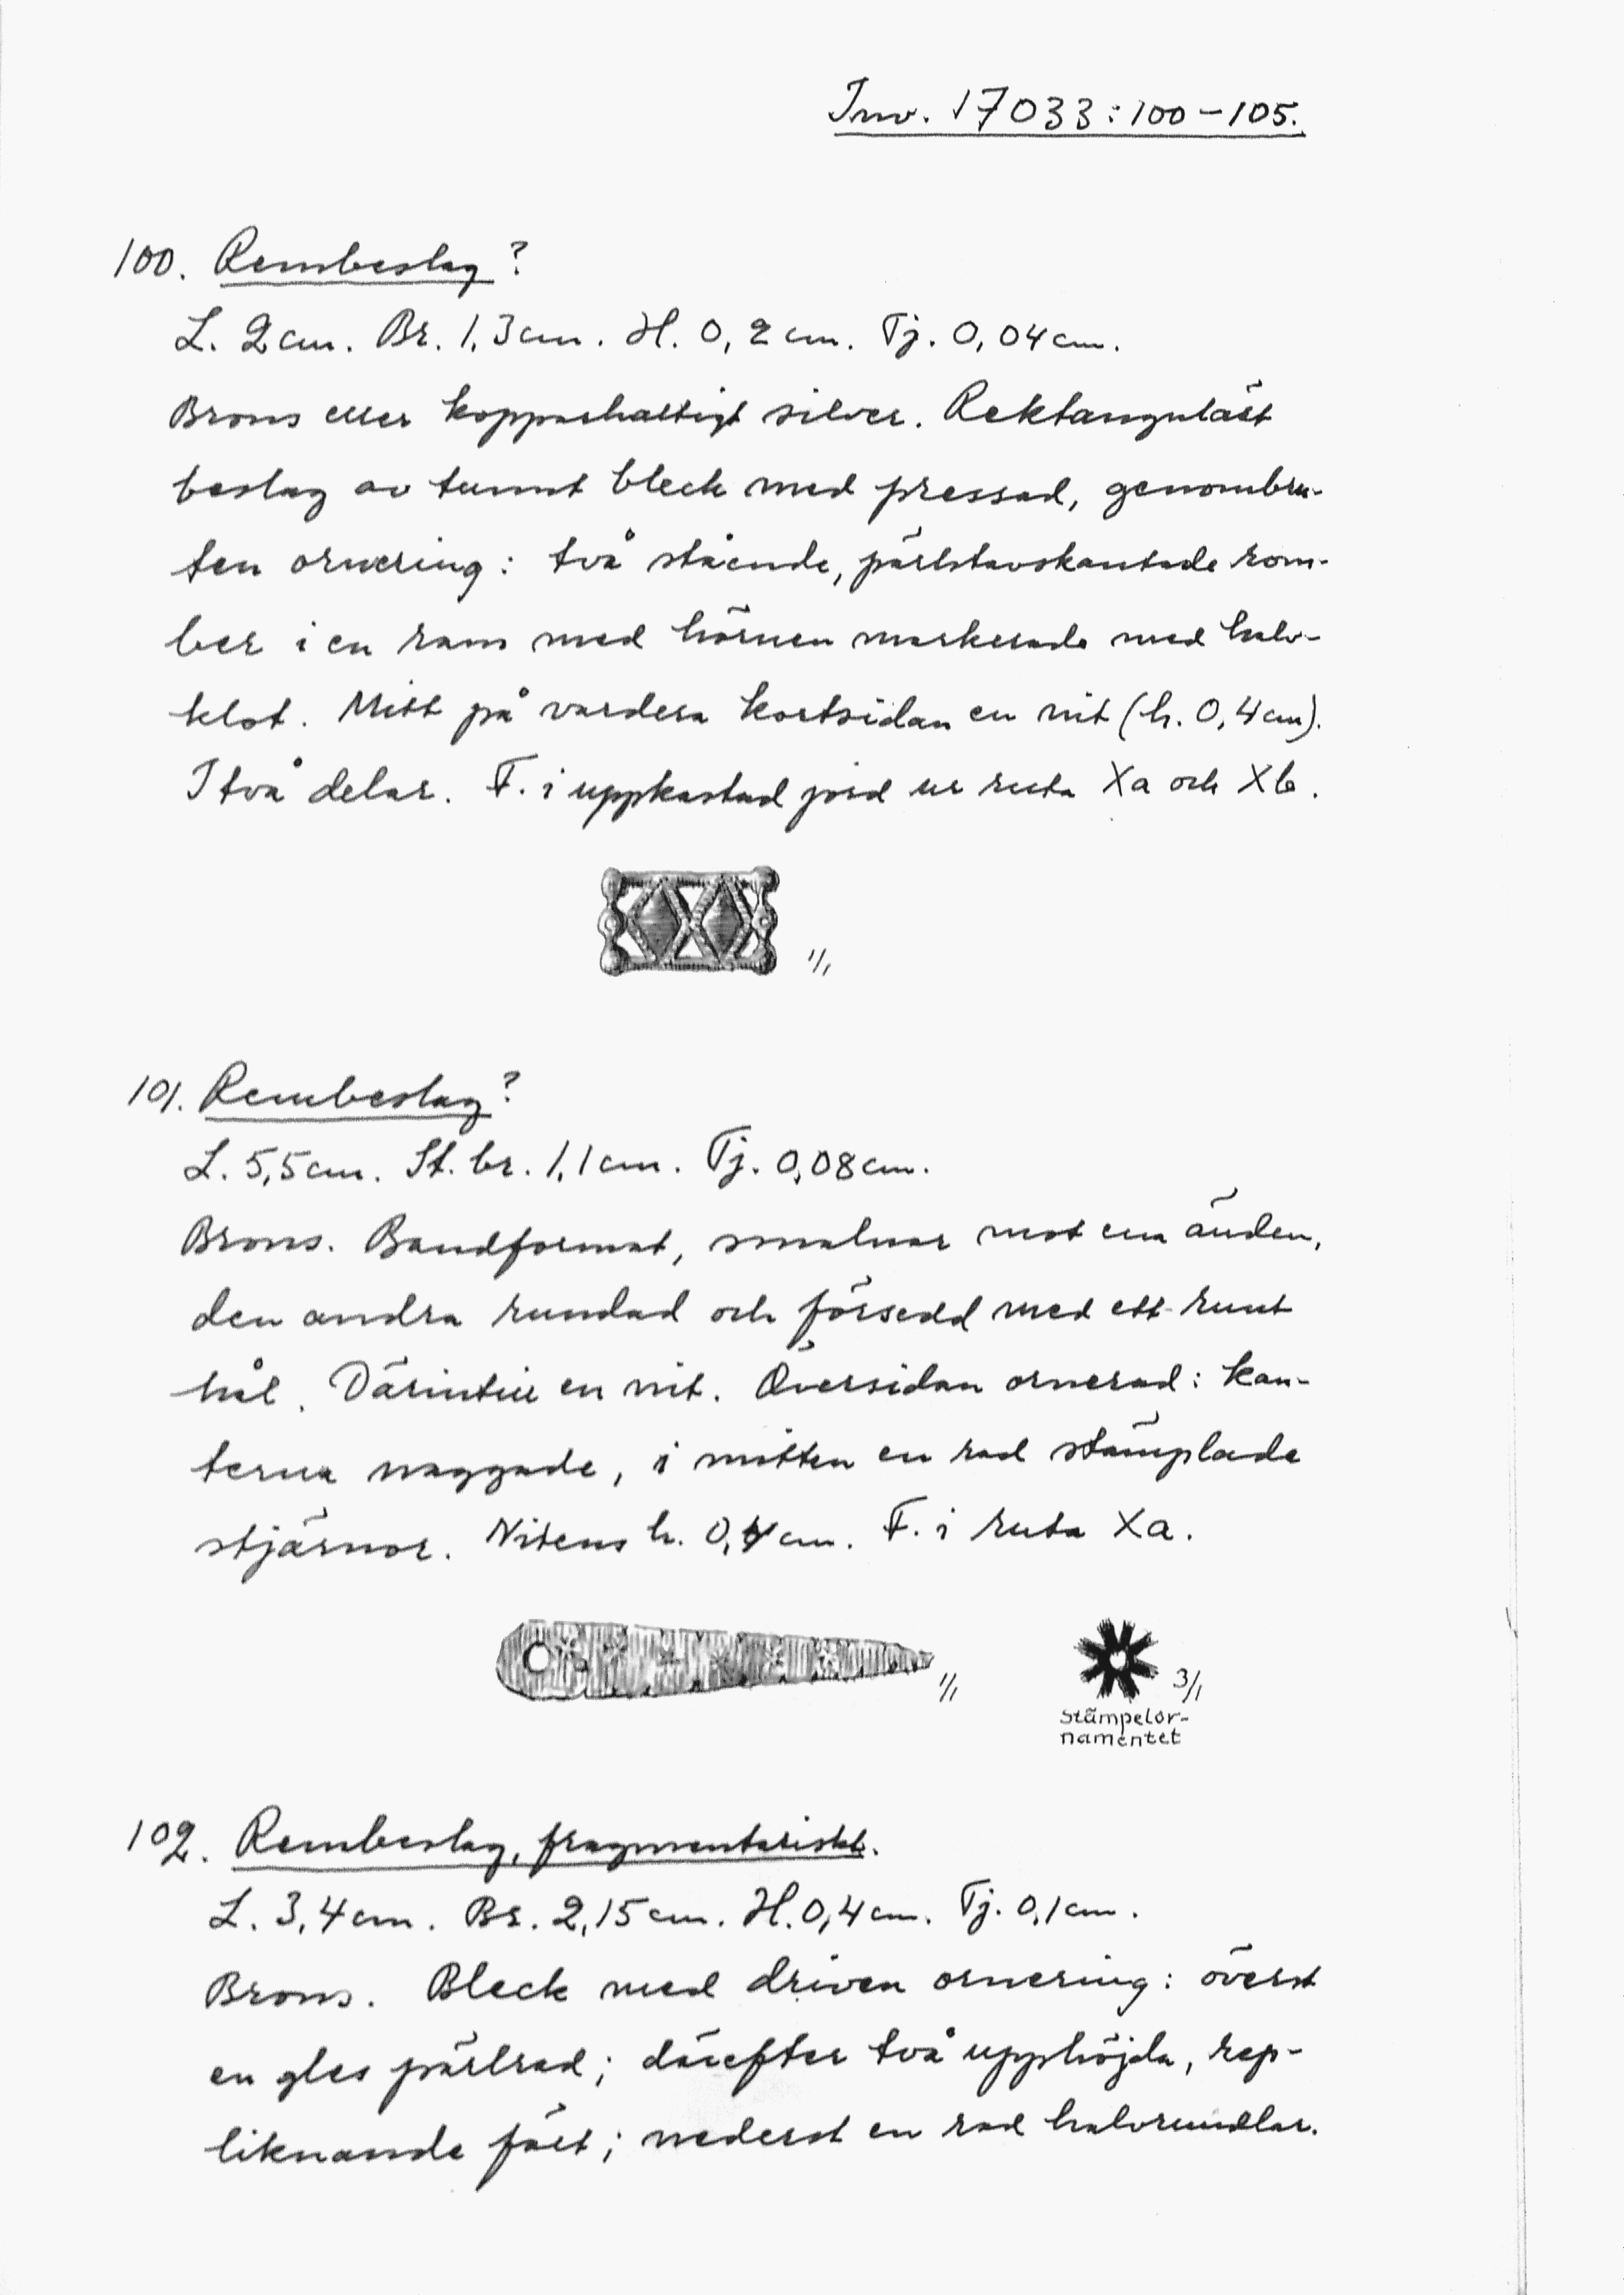 Inv. 17033:100-105.
100. Rembeslag?
L. 2 cm. Br. 1,3 cm. H. 0,2 cm. Tj. 0,04 cm.
Brons eller kopparhaltigt silver. Rektangulärt
beslag av tunnt bleck med pressad, genombru-
ten ornering: två stående, pärlstavskantade rom-
ber i en ram med hörnen markerade med halv-
klot. Mitt på vardera kortsidan en nit (h. 0,4 cm).
I två delar. F. i uppkastad jord ur ruta Xa och Xb.
1/1
101. Rembeslag?
L. 5,5 cm. St. br. 1,1 cm. Tj. 0,08 cm.
Brons. Bandformat, smalnar mot ena änden,
den andra rundad och försedd med ett runt
hål. Därintill en nit. Översidan ornerad: kan-
terna naggade, i mitten en rad stämplade
stjärnor. Nitens h. 0,4 cm. F. i ruta Xa.
1/1
3/1
stämpelor-
namentet
102. Rembeslag, fragmentariskt.
L. 3,4 cm. Br. 2,15 cm. H. 0,4 cm. Tj. 0,1 cm.
Brons. Bleck med driven ornering: överst
en gles pärlrad; därefter två upphöjda, rep-
liknande fält; nederst en rad halvrundlar.